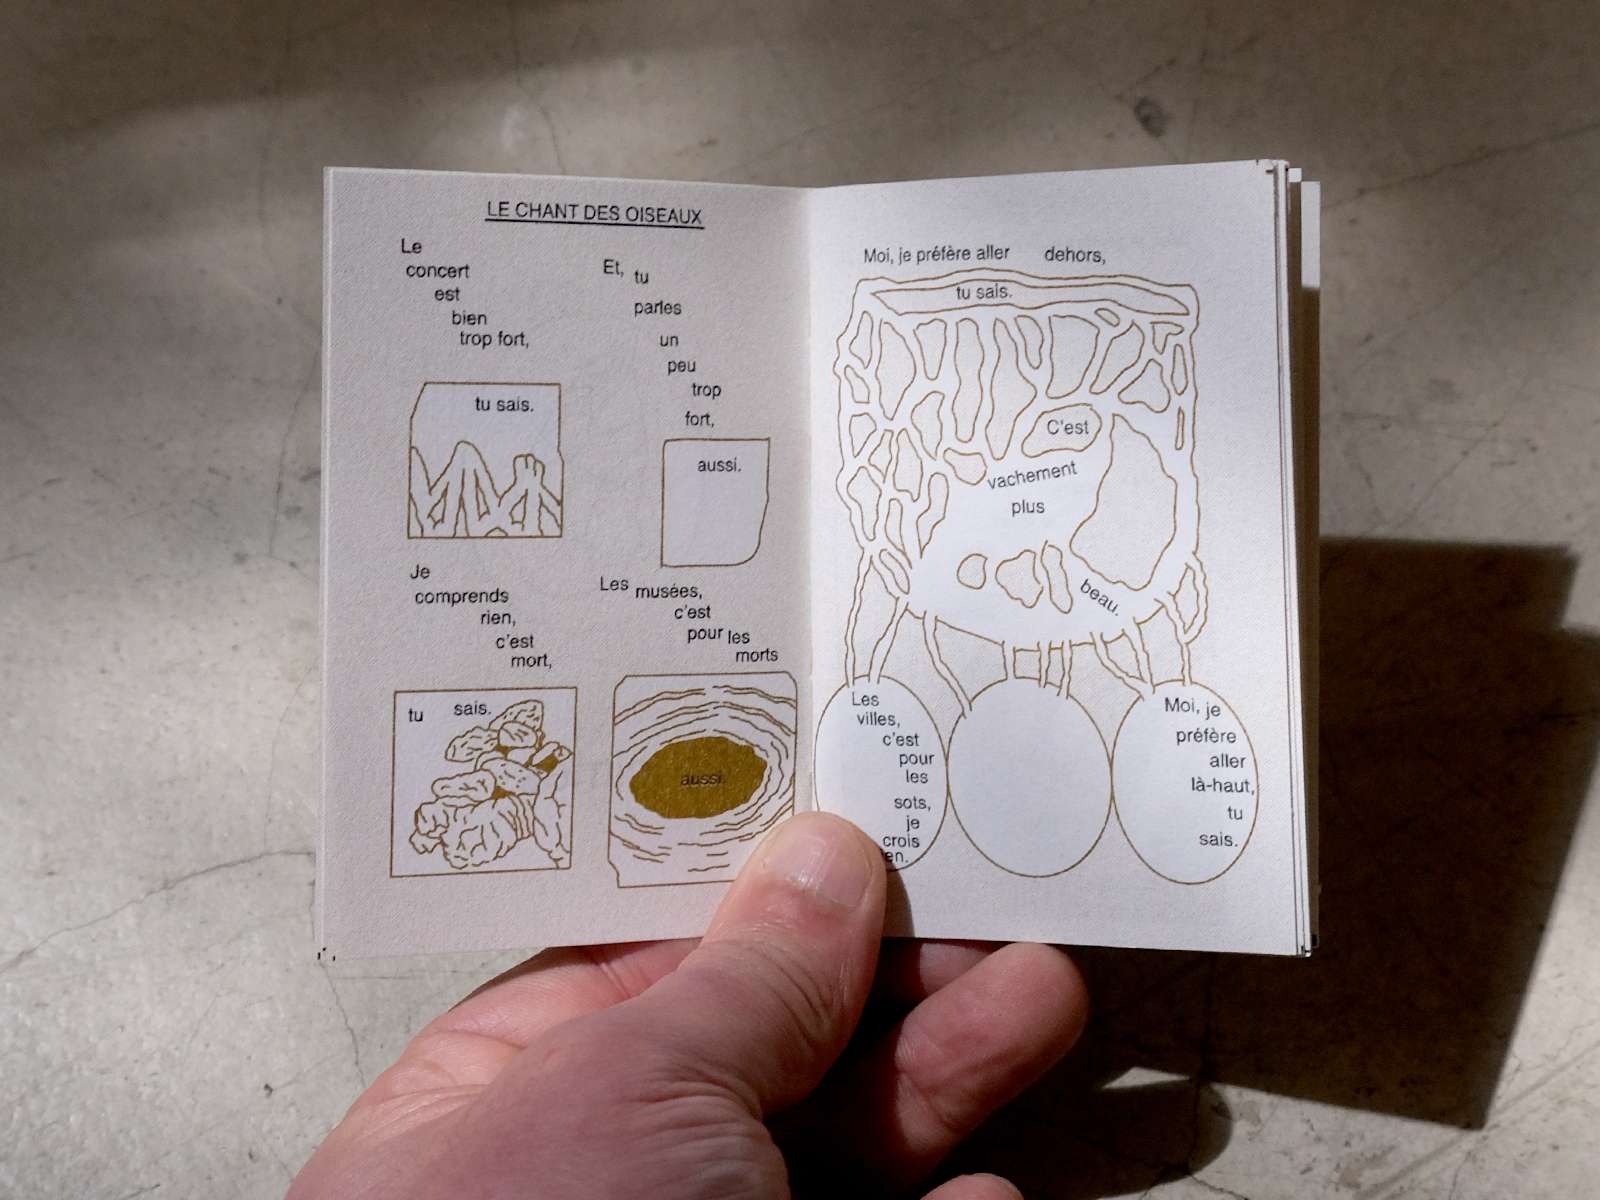 LE CHANT DES OISEAUX
Le
concert
est
bien
trop fort,
tu sais.
Et, tu
parles
un
peu
trop
fort,
aussi.
Je
comprends
rien,
c'est
mort,
tu sais.
Les musées,
c'est
pour les
morts
aussi.
Moi, je préfère aller dehors,
tu sais.
C'est
vachement
plus
beau.
Les
villes,
c'est
pour
les
sots,
je
crois
Moi, je
préfère
aller
là-haut,
tu
sais.